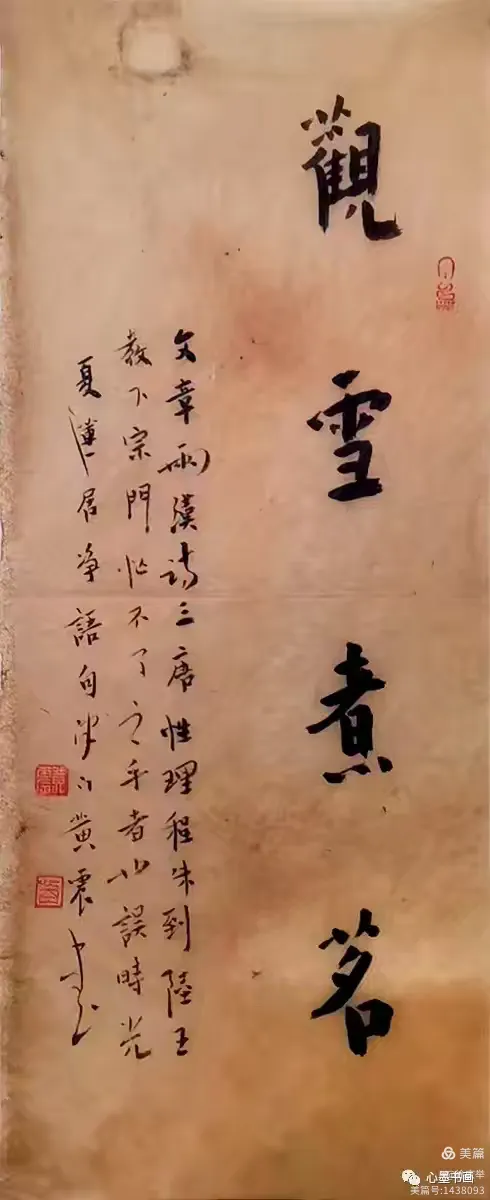 觀雪煮茗
文章兩漢詩三唐性理程朱到陸王
教下宗門忙不了之乎者也誤時光
夏蓮居净語句 黄震
美篇
心墨书画
美篇号:1438093